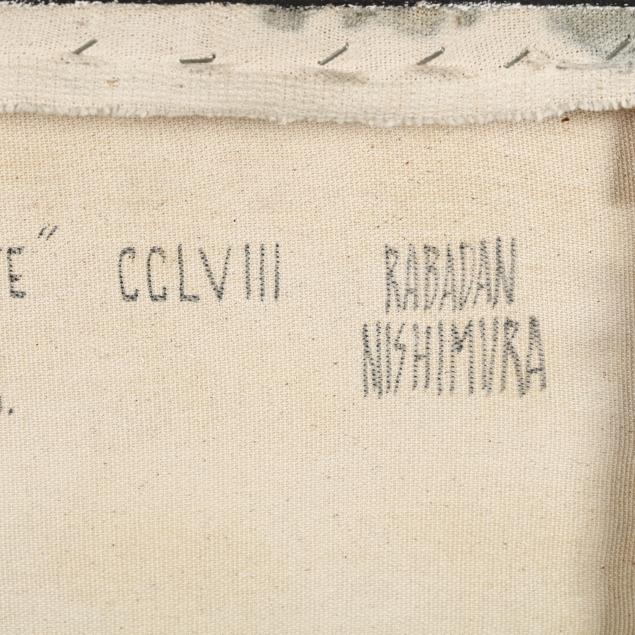 TE" CCLVIII RABADAN
NISHIMURA